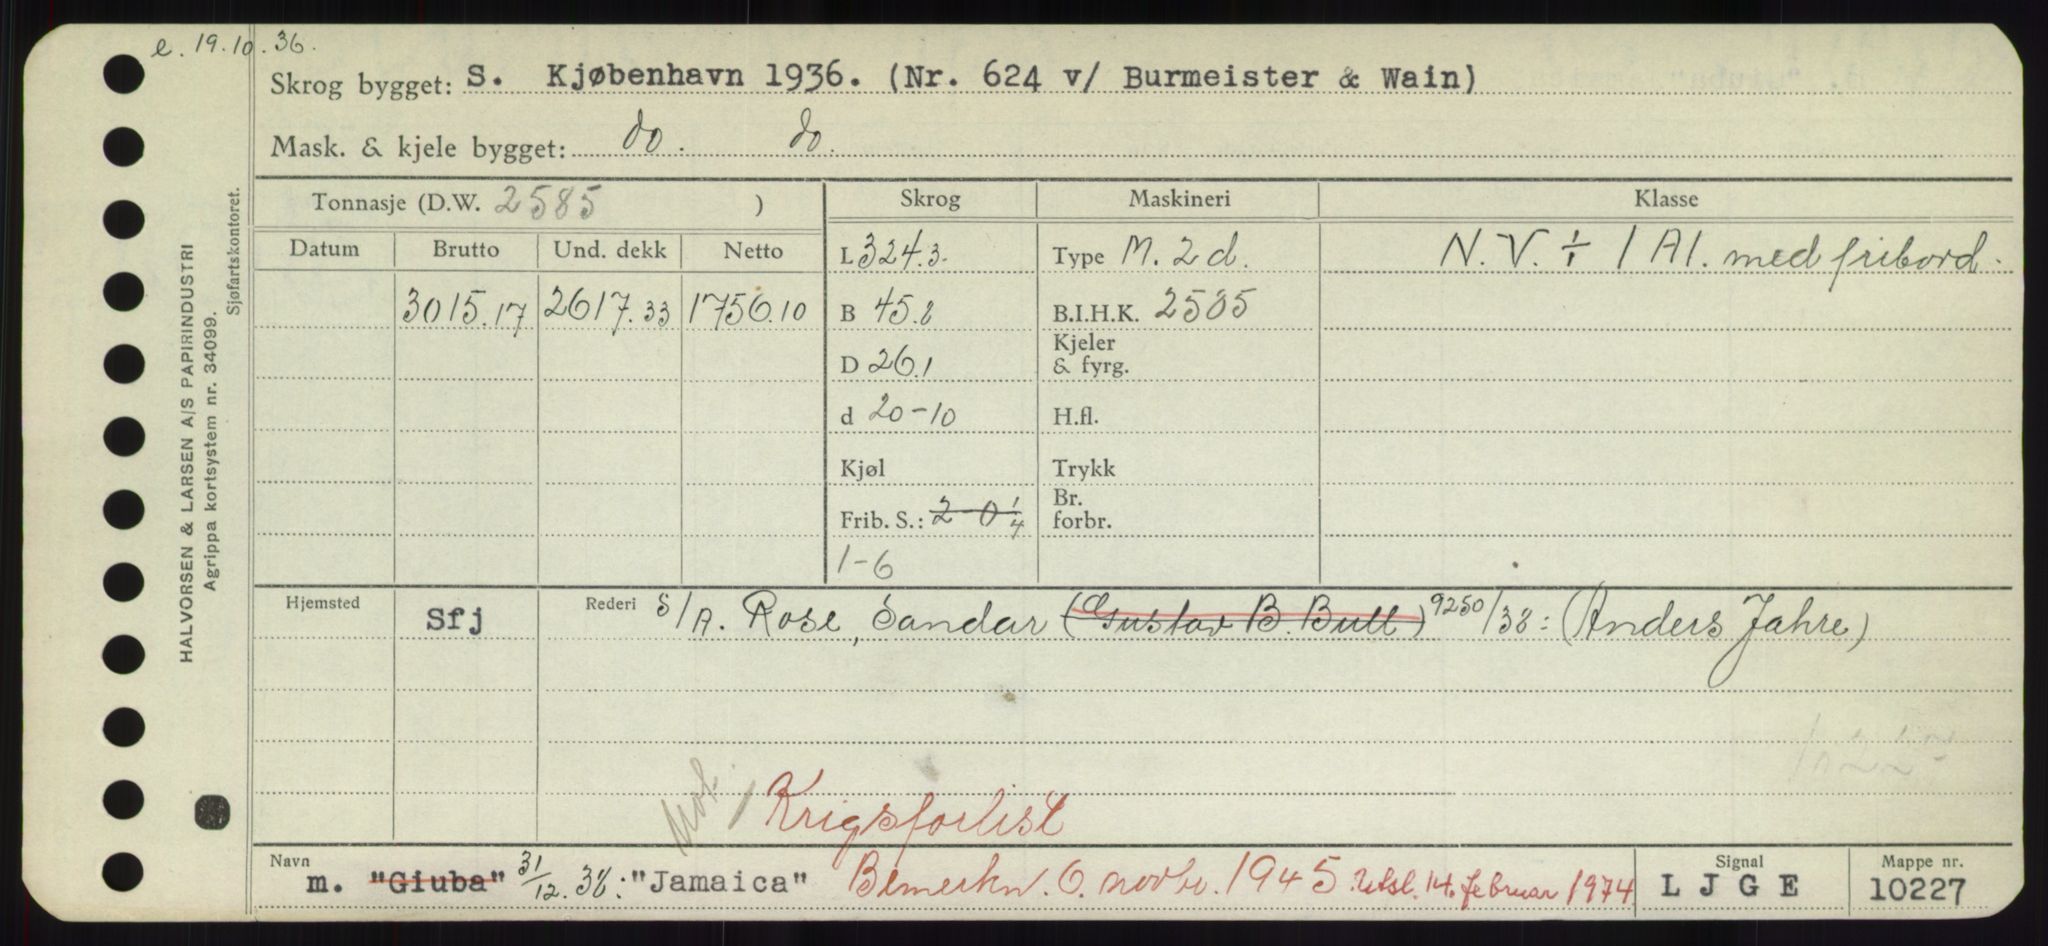 e. 19.10.36.
Skrog bygget: S. Kjøbenhavn 1936. (Nr. 624 v/ Burmeister & Wain)
Mask. & kjele bygget: do. do.
Tonnasje (D.W. 2585 ) Skrog Maskineri Klasse
Datum Brutto Und. dekk Netto L 324.3. Type M. 2 d. N. V. ✢ 1 A1. med fribord.
3015.17 2617.33 1756.10 B 45.8 B.I.H.K. 2585
D 26.1 Kjeler & fyrg.
d 20-10 H.fl.
Kjøl Trykk
Frib. S.: 2-0 1/4 Br. forbr.
1-6
Hjemsted Sfj Rederi S/A. Rose, Sandar (Gustav B. Bull) 9250/38: (Anders Jahre)
Krigsforlist
Navn m. "Giuba" 31/12.38: "Jamaica" Bemerkn. 6. novbr. 1945. Utsl. 14. februar 1974 Signal LJGE Mappe nr. 10227
HALVORSEN & LARSEN A/S PAPIRINDUSTRI
Agrippa kortsystem nr. 34099.
Sjøfartskontoret.